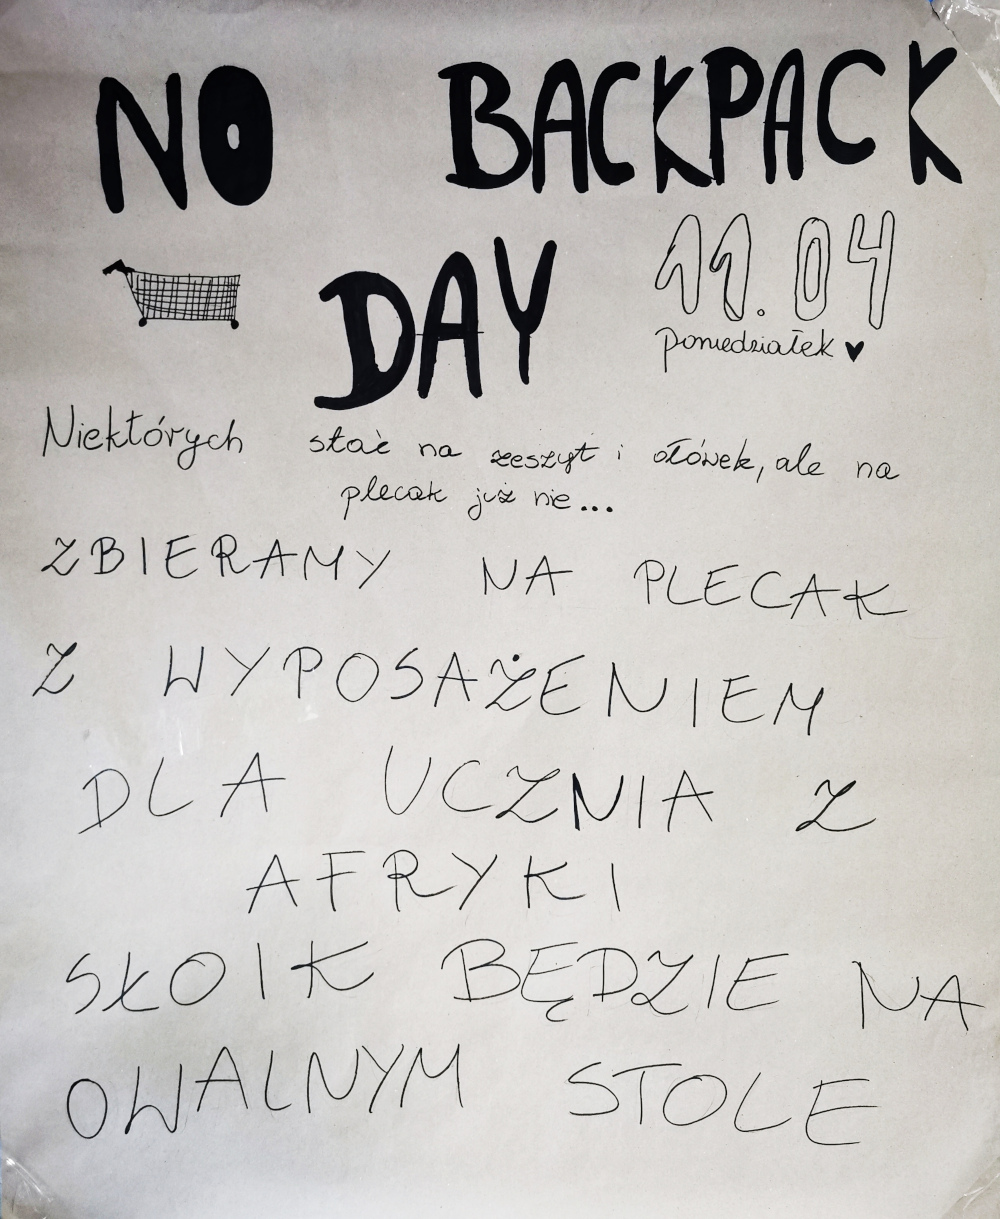 NO BACKPACK
DAY 11.04
poniedziałek ♥
Niektórych stać na zeszyt i ołówek, ale na
plecak już nie...
ZBIERAMY NA PLECAK
Z WYPOSAŻENIEM
DLA UCZNIA Z
AFRYKI
SŁOIK BĘDZIE NA
OWALNYM STOLE